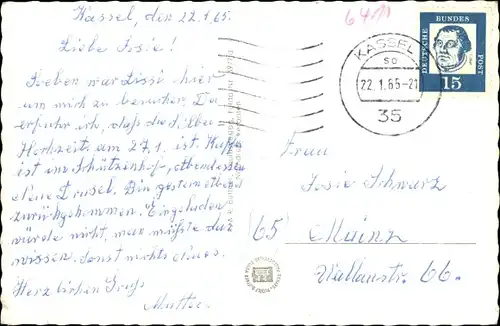 Kassel, den 22.1.65.
Liebe Josie!
Soeben war Lissi hier
um mich zu besuchen. Da
erfuhr ich, daß die
Hochzeit am 27.1. ist. Kaffee
ist im Schützenhof, Abendessen
Bin gestern Abend
zurückgekommen. Eingeladen
wurde nicht, man müßte das
wissen. Sonst nichts neues.
Herzlichen Gruß
Mutter.
6411
KASSEL
so
22.1.65-21
35
DEUTSCHE BUNDESPOST
15
Frau
Josie Schwarz
(65) Mainz
Wallaustr. 66.